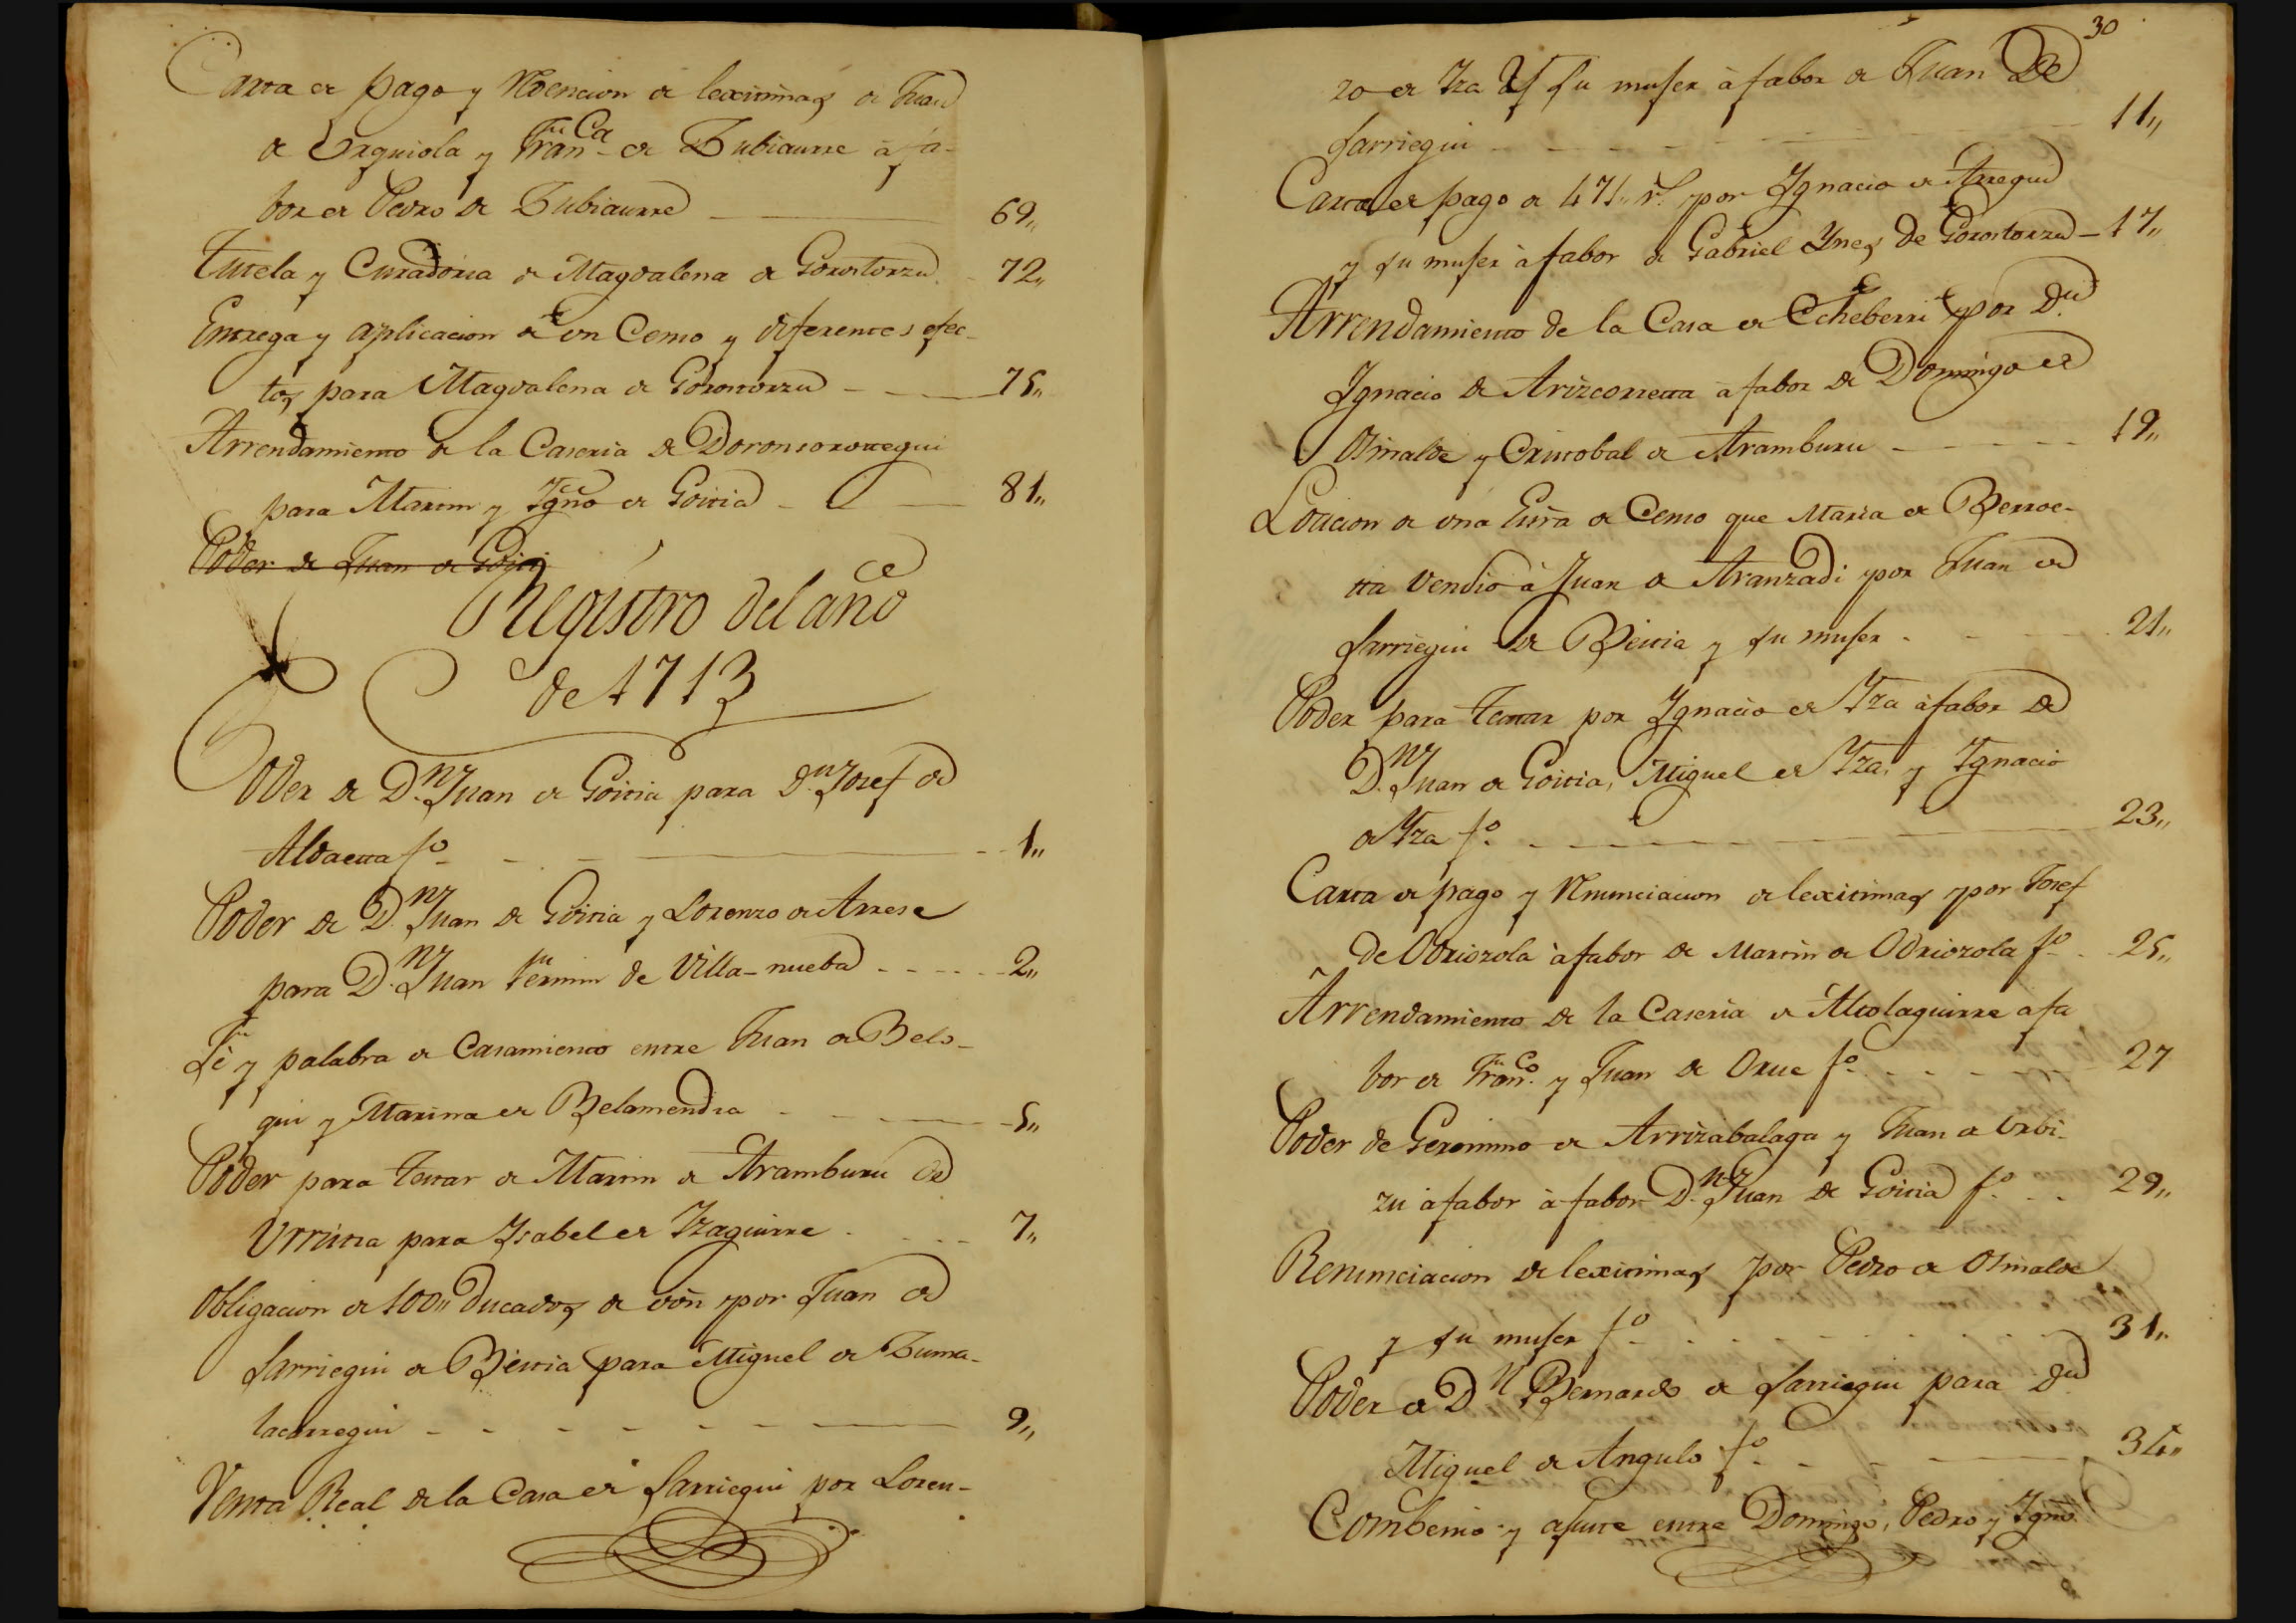 Carta de pago y Rdencion de lexitimas de Juan
de Urquiola y Fran.ca de Zubiaurre à fa-
bor de Pedro de Zubiaurre 69,,
Tutela y Curadoria de Magdalena de Gorostorzu 72,,
Entrega y aplicacion de vn Censo y diferentes efec-
tos para Magdalena de Gorostorzu 75,,
Arrendamiento de la Caseria de Doronsorottegui
para Martin y Ygn.o de Goitia 81,,
Poder de Juan de Goiti
Registro del año
de 1713
Poder de D.n Juan de Goitia para D.n Josef de
Aldaetta f.o 1,,
Poder de D.n Juan de Goitia y Lorenzo de Arrese
para D.n Juan Fermin de Villa-nueba 2,,
Fè y palabra de Casamiento entre Juan de Belo-
qui y Marina de Belamendia 5,,
Poder para testar de Martin de Aramburu de
Vrrutia para Ysabel de Yzaguirre 7,,
Obligacion de 100,, Ducados de vòn por Juan de
Sarriegui de Beitia para Miguel de Zuma-
lacarregui 9,,
Venta Real de la Casa de Sarriegui por Loren-
30
zo de Yza y su muger à fabor de Juan De
Sarriegui 11,,
Carta de pago de 471,, r.s por Ygnacio de Arregui
y su muger à fabor de Gabriel Ynes de Gorostorzu 17,,
Arrendamiento de la Casa de Echeberri por D.n
Ygnacio de Arizcorretta à fabor de Domingo de
Osinalde y Cristobal de Aramburu 19,,
Loucion de vna Escra de Censo que Maria de Berroe-
tta vendiò à Juan de Aranzadi por Juan de
Sarriegui de Beitia y su muger 21,,
Poder para testar por Ygnacio de Yza à fabor de
D.n Juan de Goitia, Miguel de Yza, y Ygnacio
de Yza f.o 23,,
Carta de pago y Rnunciacion de lexitimas por Josef
de Odriozola à fabor de Martin de Odriozola f.o 25,,
Arrendamiento de la Caseria de Altolaguirre a fa
bor de Fran.co y Juan de Orue f.o 27
Poder de Geronimo de Arrizabalaga y Juan de Vrbi-
zu à fabor à fabor D.n Juan de Goitia f.o 29,,
Renunciacion de lexitimas por Pedro de Osinalde
y su muger f.o 31,,
Poder de D.n Bernardo de Sarriegui para D.n
Miguel de Angulo f.o 34,,
Combenio y ajuste entre Domingo, Pedro y Ygn.o